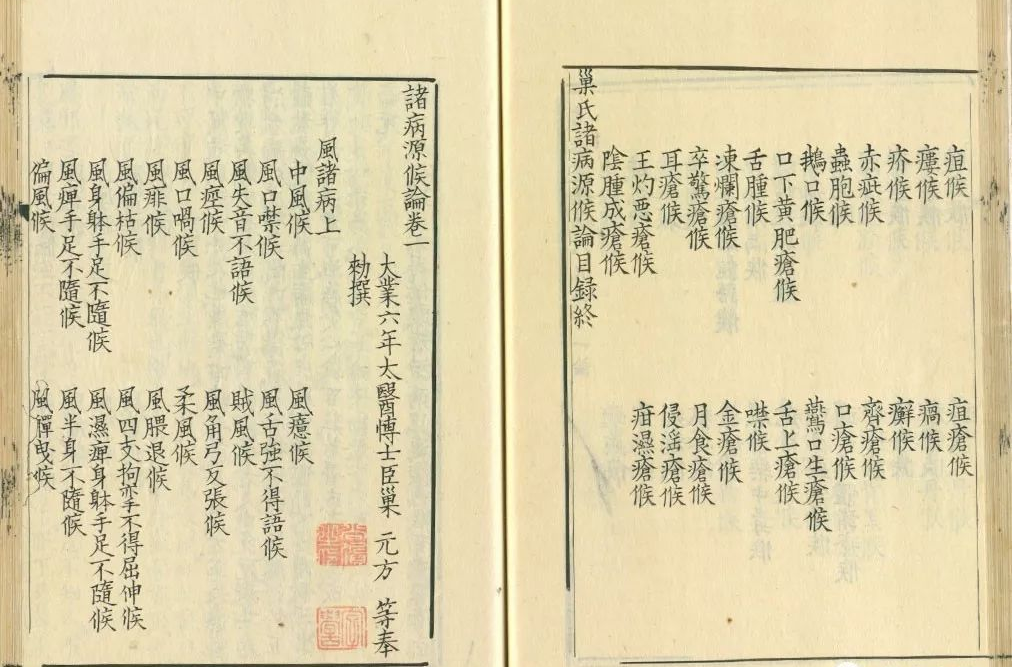 疽候　疽瘡候
瘻候　瘑候
疥候　癬候
赤疵候　齊瘡候
蟲胞候　口瘡候
鵝口候　鷰口生瘡候
口下黃肥瘡候　舌上瘡候
舌腫候　噤候
凍爛瘡候　金瘡候
卒驚瘡候　月食瘡候
耳瘡候　侵淫瘡候
王灼悪瘡候　疳濕瘡候
陰腫成瘡候
巢氏諸病源候論目録終
諸病源候論卷一
大業六年太醫博士臣巢　元方　等奉
勑撰
風諸病上
中風候　風癔候
風口噤候　風舌強不得語候
風失音不語候　賊風候
風痙候　風角弓反張候
風口喎候　柔風候
風痱候　風腲退候
風偏枯候　風四支拘攣不得屈伸候
風身躰手足不隨候　風濕痺身躰手足不隨候
風痺手足不隨候　風半身不隨候
偏風候　風軃曳候